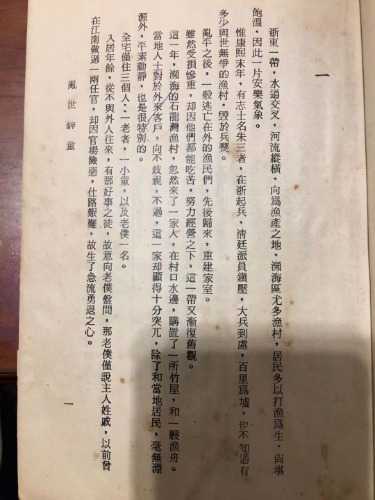 一
浙東一帶，水道交叉，河流縱橫，向爲漁產之地，瀕海區尤多漁村，居民多以打漁爲生，尚堪
飽溫，因此一片安樂氣象。
惟康熙末年，有志士名朱三者，在浙起兵，清廷派員鎭壓，大兵到處，百里爲墟，也不知道有
多少與世無爭的漁村，毀於兵燹。
亂平之後，一般逃亡在外的漁民們，先後歸來，重建家室。
雖然受損慘重，却因他們都能吃苦，努力經營之下，這一帶又漸復舊觀。
這一年，瀕海的石龍灣漁村，忽然來了一家人，在村口水邊，購置了一所竹屋，和一艘漁舟。
當地人士對於外來客戶，向不歧視，不過，這一家却顯得十分突兀，除了和當地居民，毫無淵
源外，平素動靜，也是很特別的。
全宅僅住三個人：一老者，一小童，以及老僕一名。
入居年餘，從不與外人往來，有那好事之徒，故意向老僕盤問，那老僕僅說主人姓戚，以前曾
在江南做過一兩任官，却因官場險惡，仕路艱難，故生了急流勇退之心。
亂世神童
一